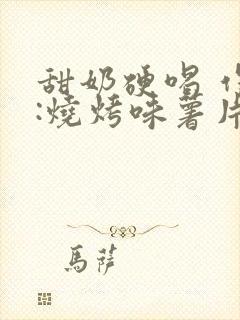 甜奶硬唱
:燒烤味薯片
馬薩